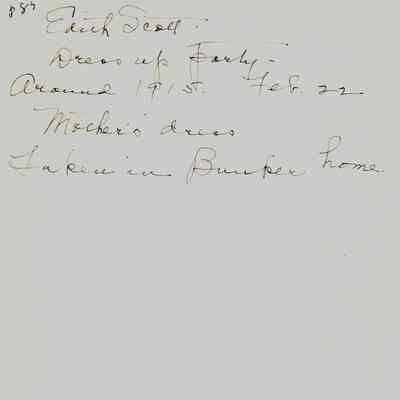 Edith Scott.
Dress up Party -
Around 1915. Feb. 22
Mother's dress
Taken in Bunker home